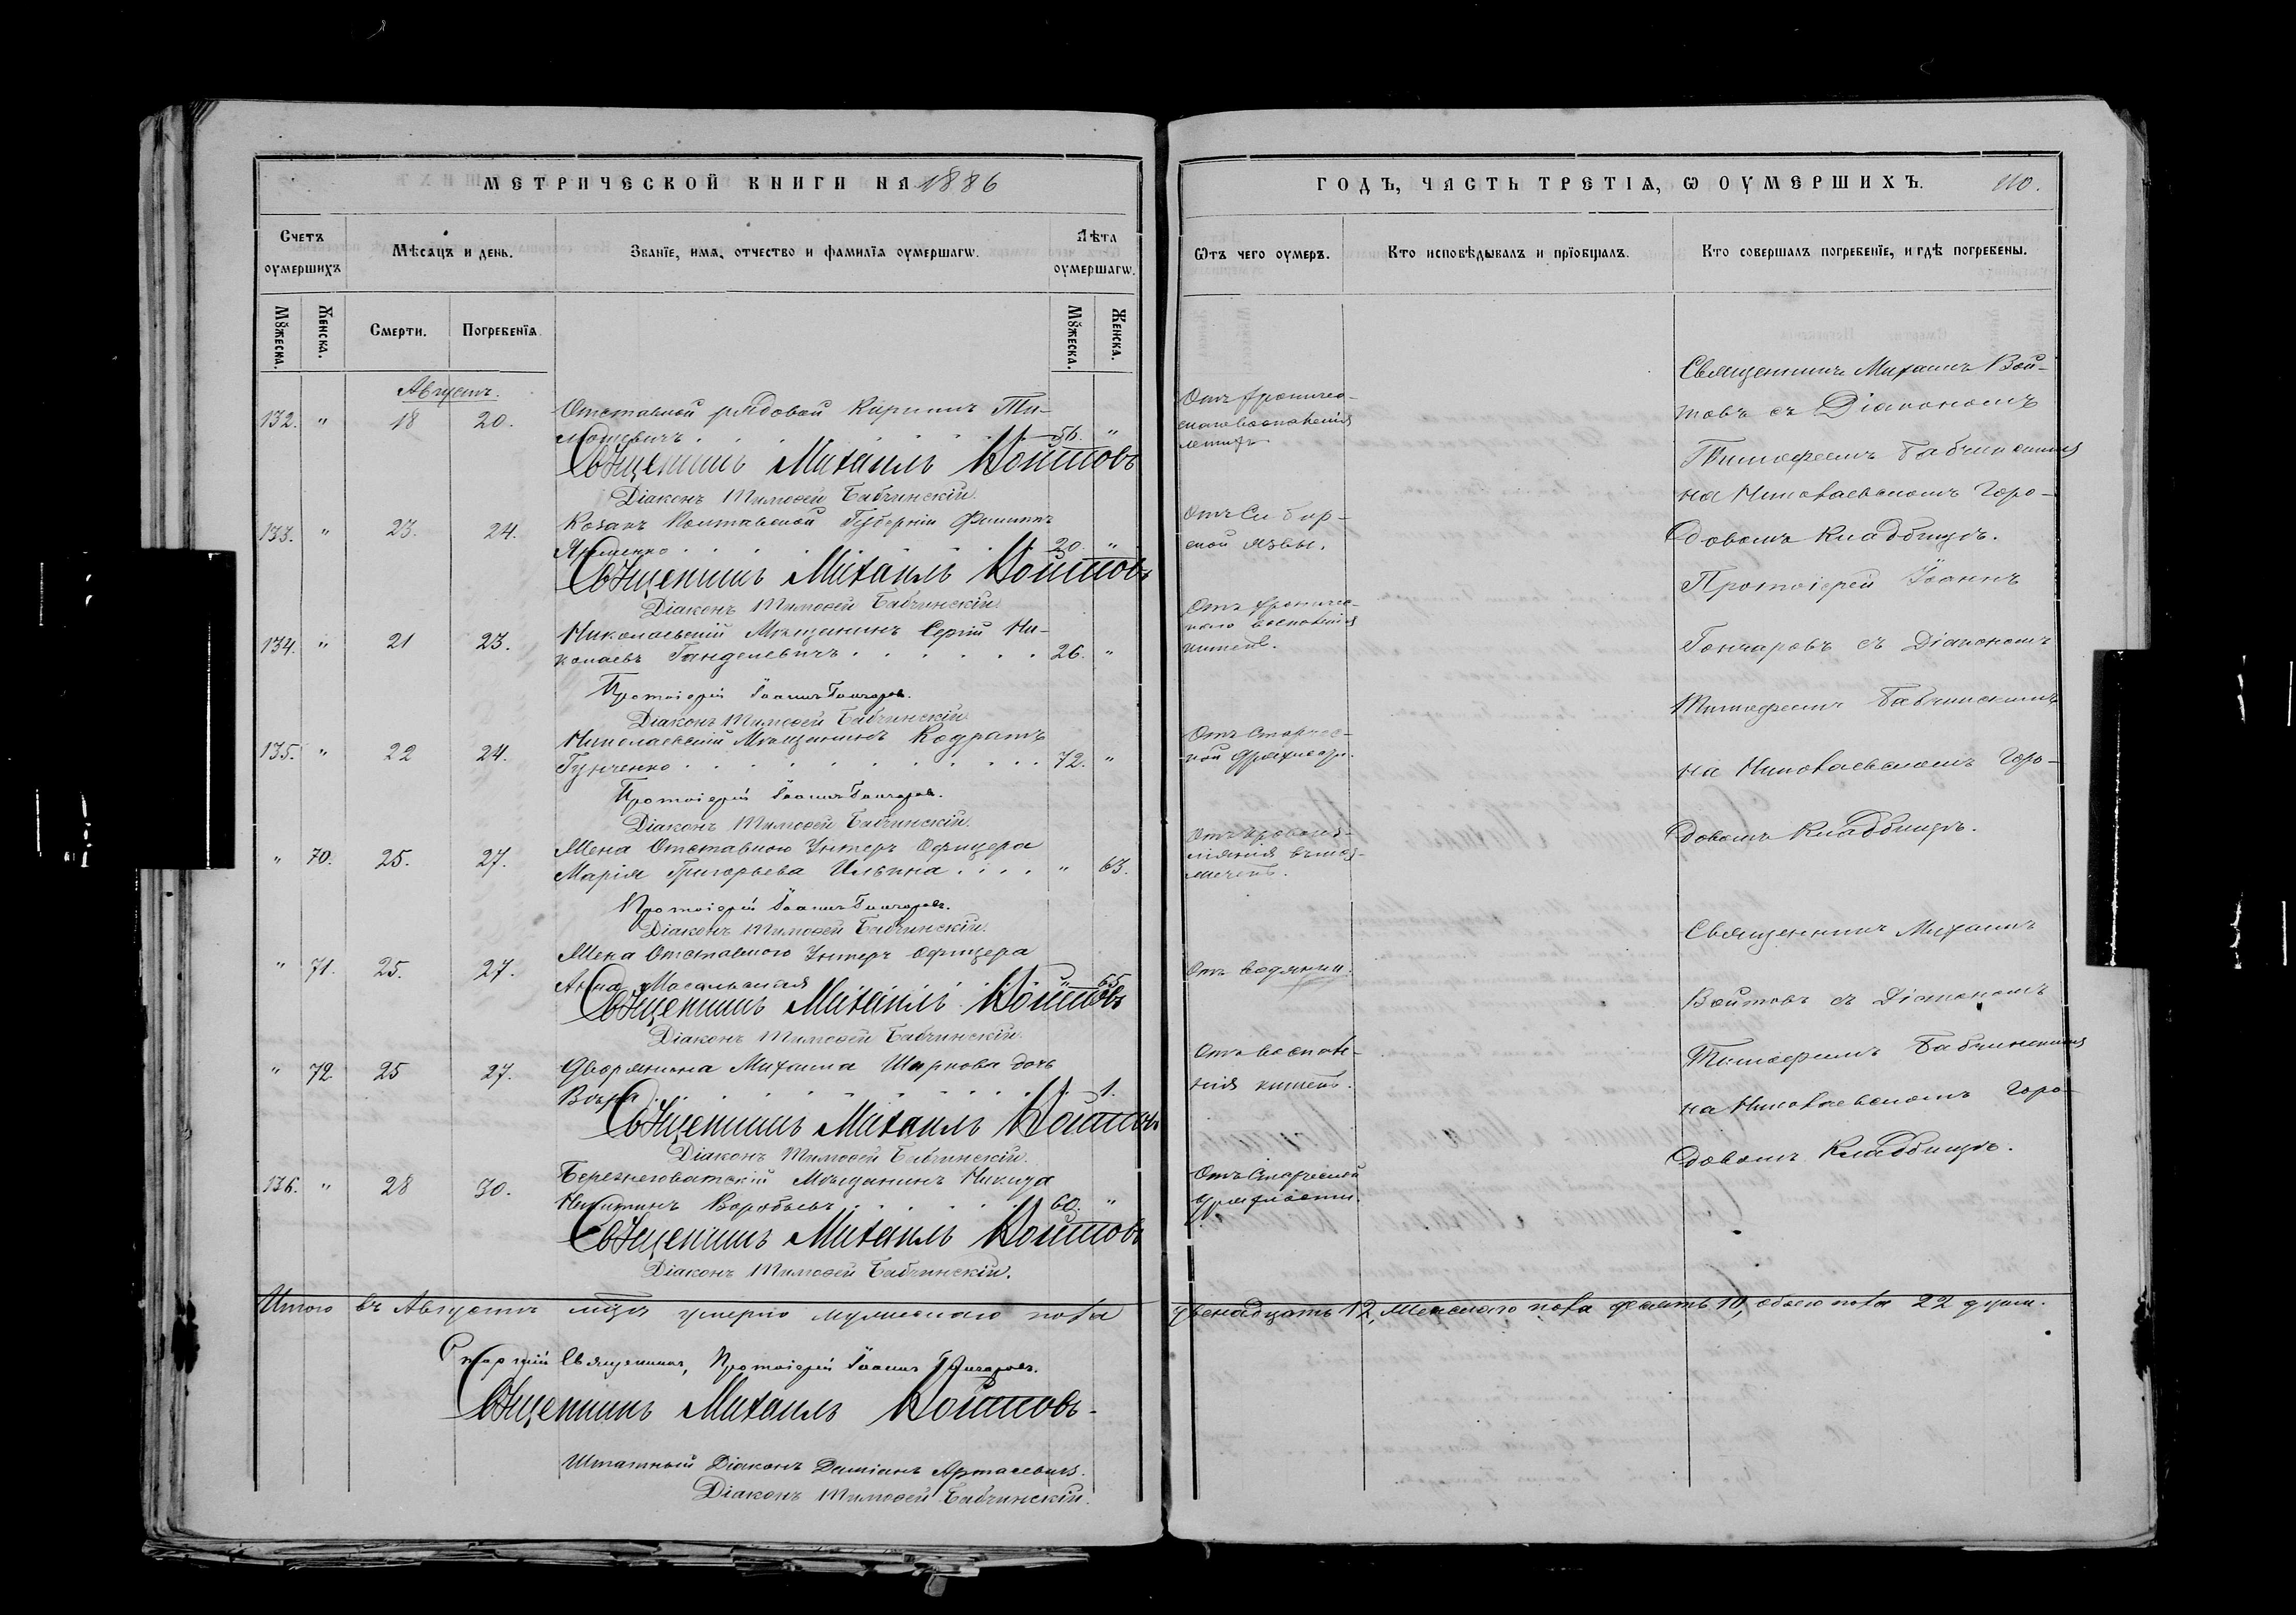 МЕТРИЧЕСКОЙ КНИГИ НА 1886
Счетъ оумершихъ
Мѣсяцъ и день.
Званїе, имя, отчество и фамилїя оумершагѡ.
Лѣта оумершагѡ.
Мꙋжеска.
Женска.
Смерти.
Погребенїя.
Мꙋжеска.
Женска.
Августъ.
132. " 18 20. Отставной рядовой Кирилъ Ти-
56. "
Священникъ Михаилъ Войтовъ
Діаконъ Тимоѳей Бабчинскій.
133. " 23. 24. Козакъ Полтавской Губерніи Филиппъ
20. "
Священникъ Михаилъ Войтовъ
Діаконъ Тимоѳей Бабчинскій.
134. " 21 23. Николаевскій Мѣщанинъ Сергій Ни-
колаевъ Ганделевичъ 26. "
Протоіерей Іоаннъ Гончаровъ.
Діаконъ Тимоѳей Бабчинскій.
135. " 22 24. Николаевскій Мѣщанинъ Кодратъ
72. "
Протоіерей Іоаннъ Гончаровъ.
Діаконъ Тимоѳей Бабчинскій.
" 70. 25. 27. Жена Отставного Унтеръ Офицера
Марія Григорьева Ильина " 63.
Протоіерей Іоаннъ Гончаровъ.
Діаконъ Тимоѳей Бабчинскій.
" 71. 25. 27. Жена Отставного Унтеръ Офицера
Анна Масальская " 65
Священникъ Михаилъ Войтовъ
Діаконъ Тимоѳей Бабчинскій.
" 72. 25 27. Дворянина Михаила Шаркова дочь
Вѣра 1.
Священникъ Михаилъ Войтовъ
Діаконъ Тимоѳей Бабчинскій.
136. " 28 30. Березнеговатскій Мѣщанинъ Никита
Никитинъ Воробьевъ 60. "
Священникъ Михаилъ Войтовъ
Діаконъ Тимоѳей Бабчинскій.
Итого въ Августѣ мцѣ умерло мужескаго пола
Старшій Священникъ, Протоіерей Іоаннъ Гончаровъ.
Священникъ Михаилъ Войтовъ
Штатный Діаконъ Даміанъ
Діаконъ Тимоѳей Бабчинскій.
ГОДЪ, ЧАСТЬ ТРЕТІѦ, Ѡ ОУМЕРШИХЪ. 110.
Ѿтъ чего оумеръ.
Кто исповѣдывалъ и прїобщалъ.
Кто совершалъ погребенїе, и гдѣ погребены.
Отъ хрониче-
скаго воспаленія
легкихъ
Отъ Сибир-
ской язвы.
Отъ хрониче-
скаго воспаленія
кишекъ.
Отъ Старчес-
кой дряхлости.
Отъ кровоиз-
ліянія въ
Отъ водянки.
Отъ воспале-
нія кишекъ.
Отъ Старческой
дряхлости.
Священникъ Михаилъ Вой-
товъ съ Діакономъ
Тимофеемъ Бабчинскимъ
на Николаевскомъ Горо-
довомъ Кладбищѣ.
Протоіерей Іоаннъ
Гончаровъ съ Діакономъ
Тимофеемъ Бабчинскимъ
на Николаевскомъ Горо-
довомъ Кладбищѣ.
Священникъ Михаилъ
Войтовъ съ Діакономъ
Тимофеемъ Бабчинскимъ
на Николаевскомъ Горо-
довомъ Кладбищѣ.
двенадцать 12, женскаго пола десять 10, обоего пола 22 души.